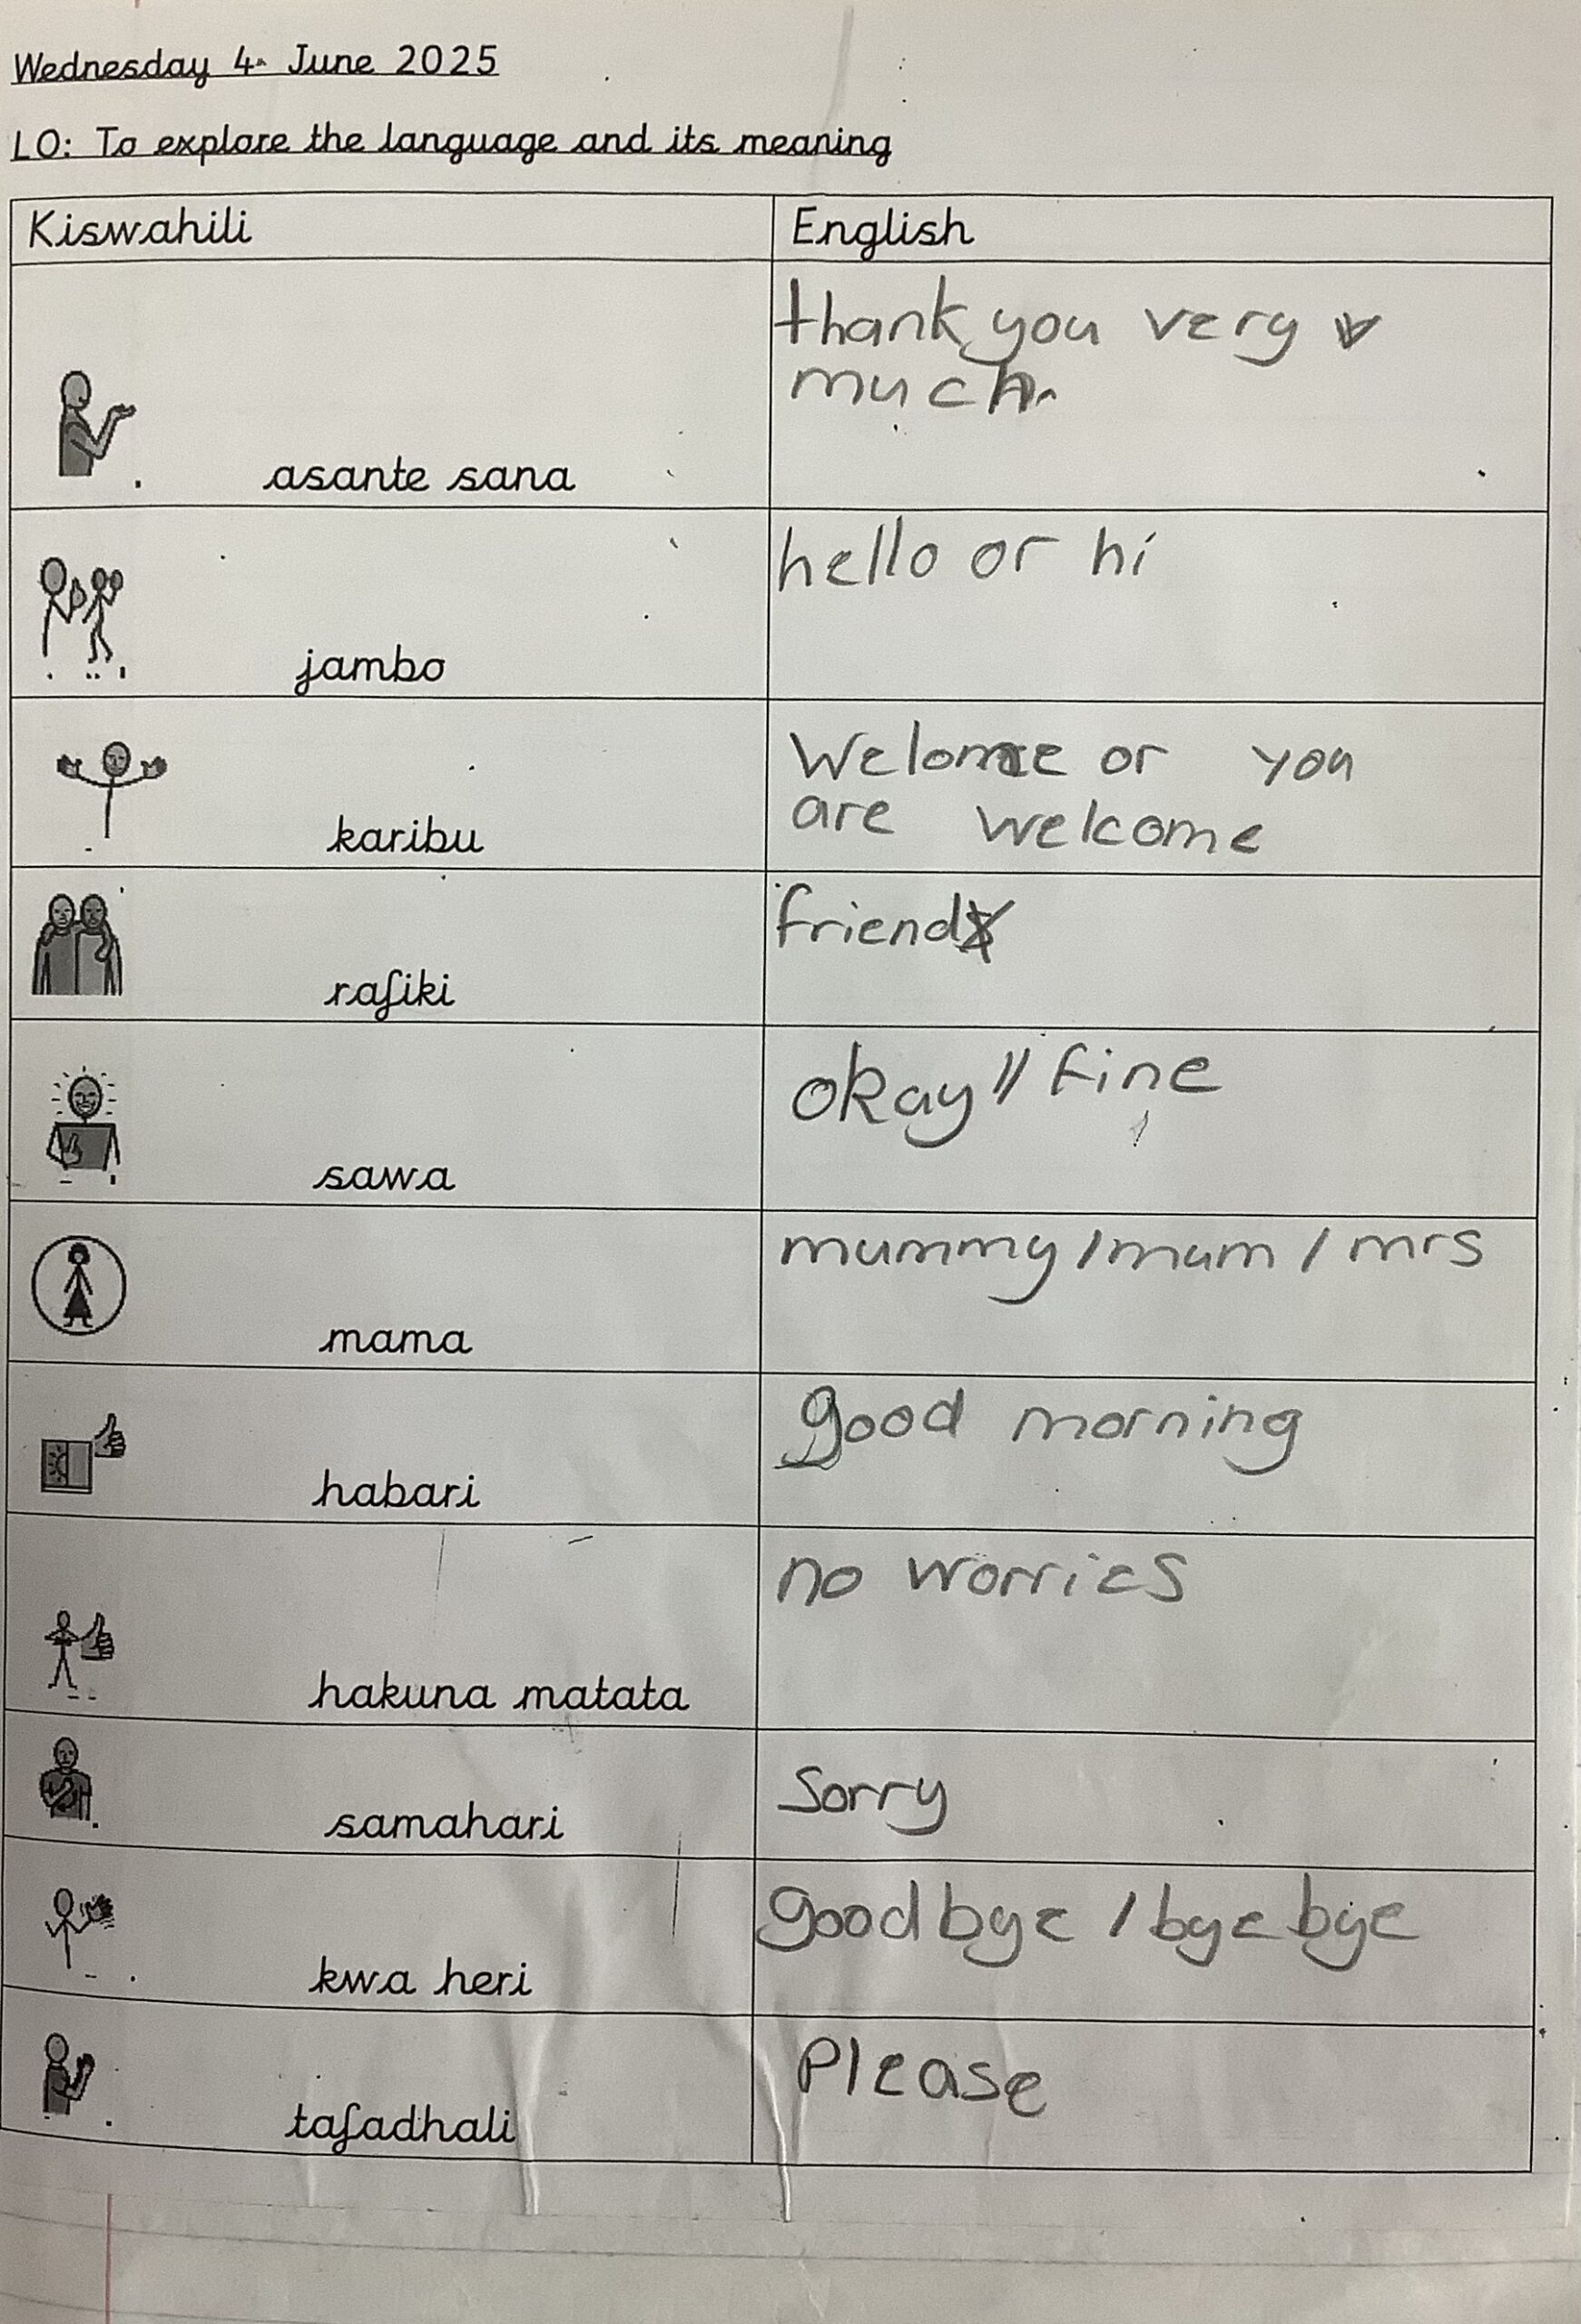 Wednesday 4th June 2025
LO: To explore the language and its meaning
Kiswahili English
thank you very
much.
asante sana
hello or hi
jambo
Welomce or you
are welcome
karibu
friend
rafiki
okay // fine
sawa
mummy / mum / mrs
mama
good morning
habari
no worries
hakuna matata
Sorry
samahari
goodbye / bye bye
kwa heri
Please
tafadhali